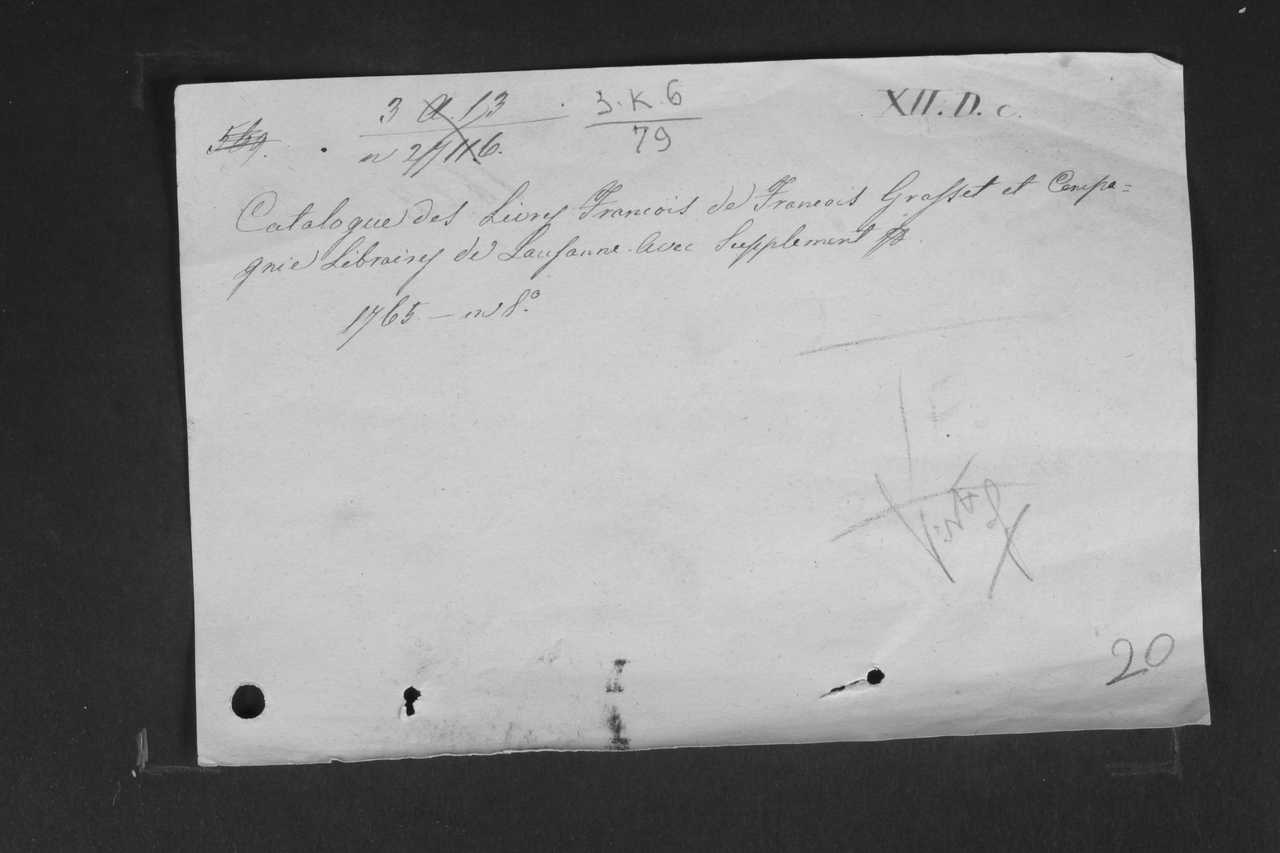 3.K.6
79
XII.D.c.
Catalogue des Livres Francois de Francois Grasset et Compa=
gnie Libraires de Lausanne. Avec Supplement
1765 — in 8.º
20